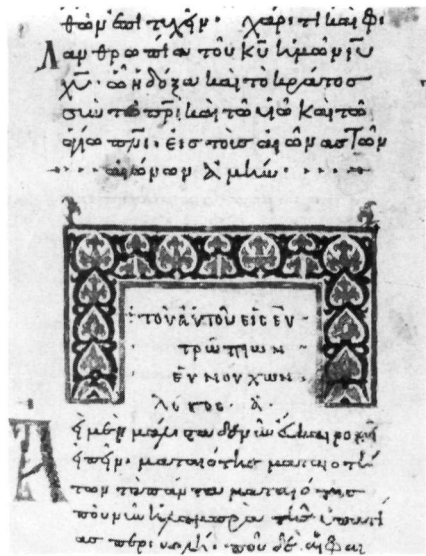 θῶν ἐπιτυχεῖν· χάριτι καὶ φι
λανθρωπία τοῦ κυ ἡμῶν ιυ
χυ· ὧ ἡ δόξα καὶ τὸ κράτος
σὺν τῶ πρι καὶ τῶ υἱῶ καὶ τῶ
ἁγίω πνι· εἰς τοὺς αἰῶνας τῶν
αἰώνων ἀμήν
τοῦ αὐτοῦ εἰς εὐ
τρώπιων
εὐνούχων
λόγος · α ·
Ἀεὶ μὲν μάλιστα δὲ νῦν εὔκαιρον
εἰπεῖν· ματαιότης ματαιοτή
των τὰ πάντα ματαιότης
ποῦ νῦν ἡ λαμπρὰ τῆς ὑπατεί
ας περιβολή· ποῦ δὲ αἱ φαι